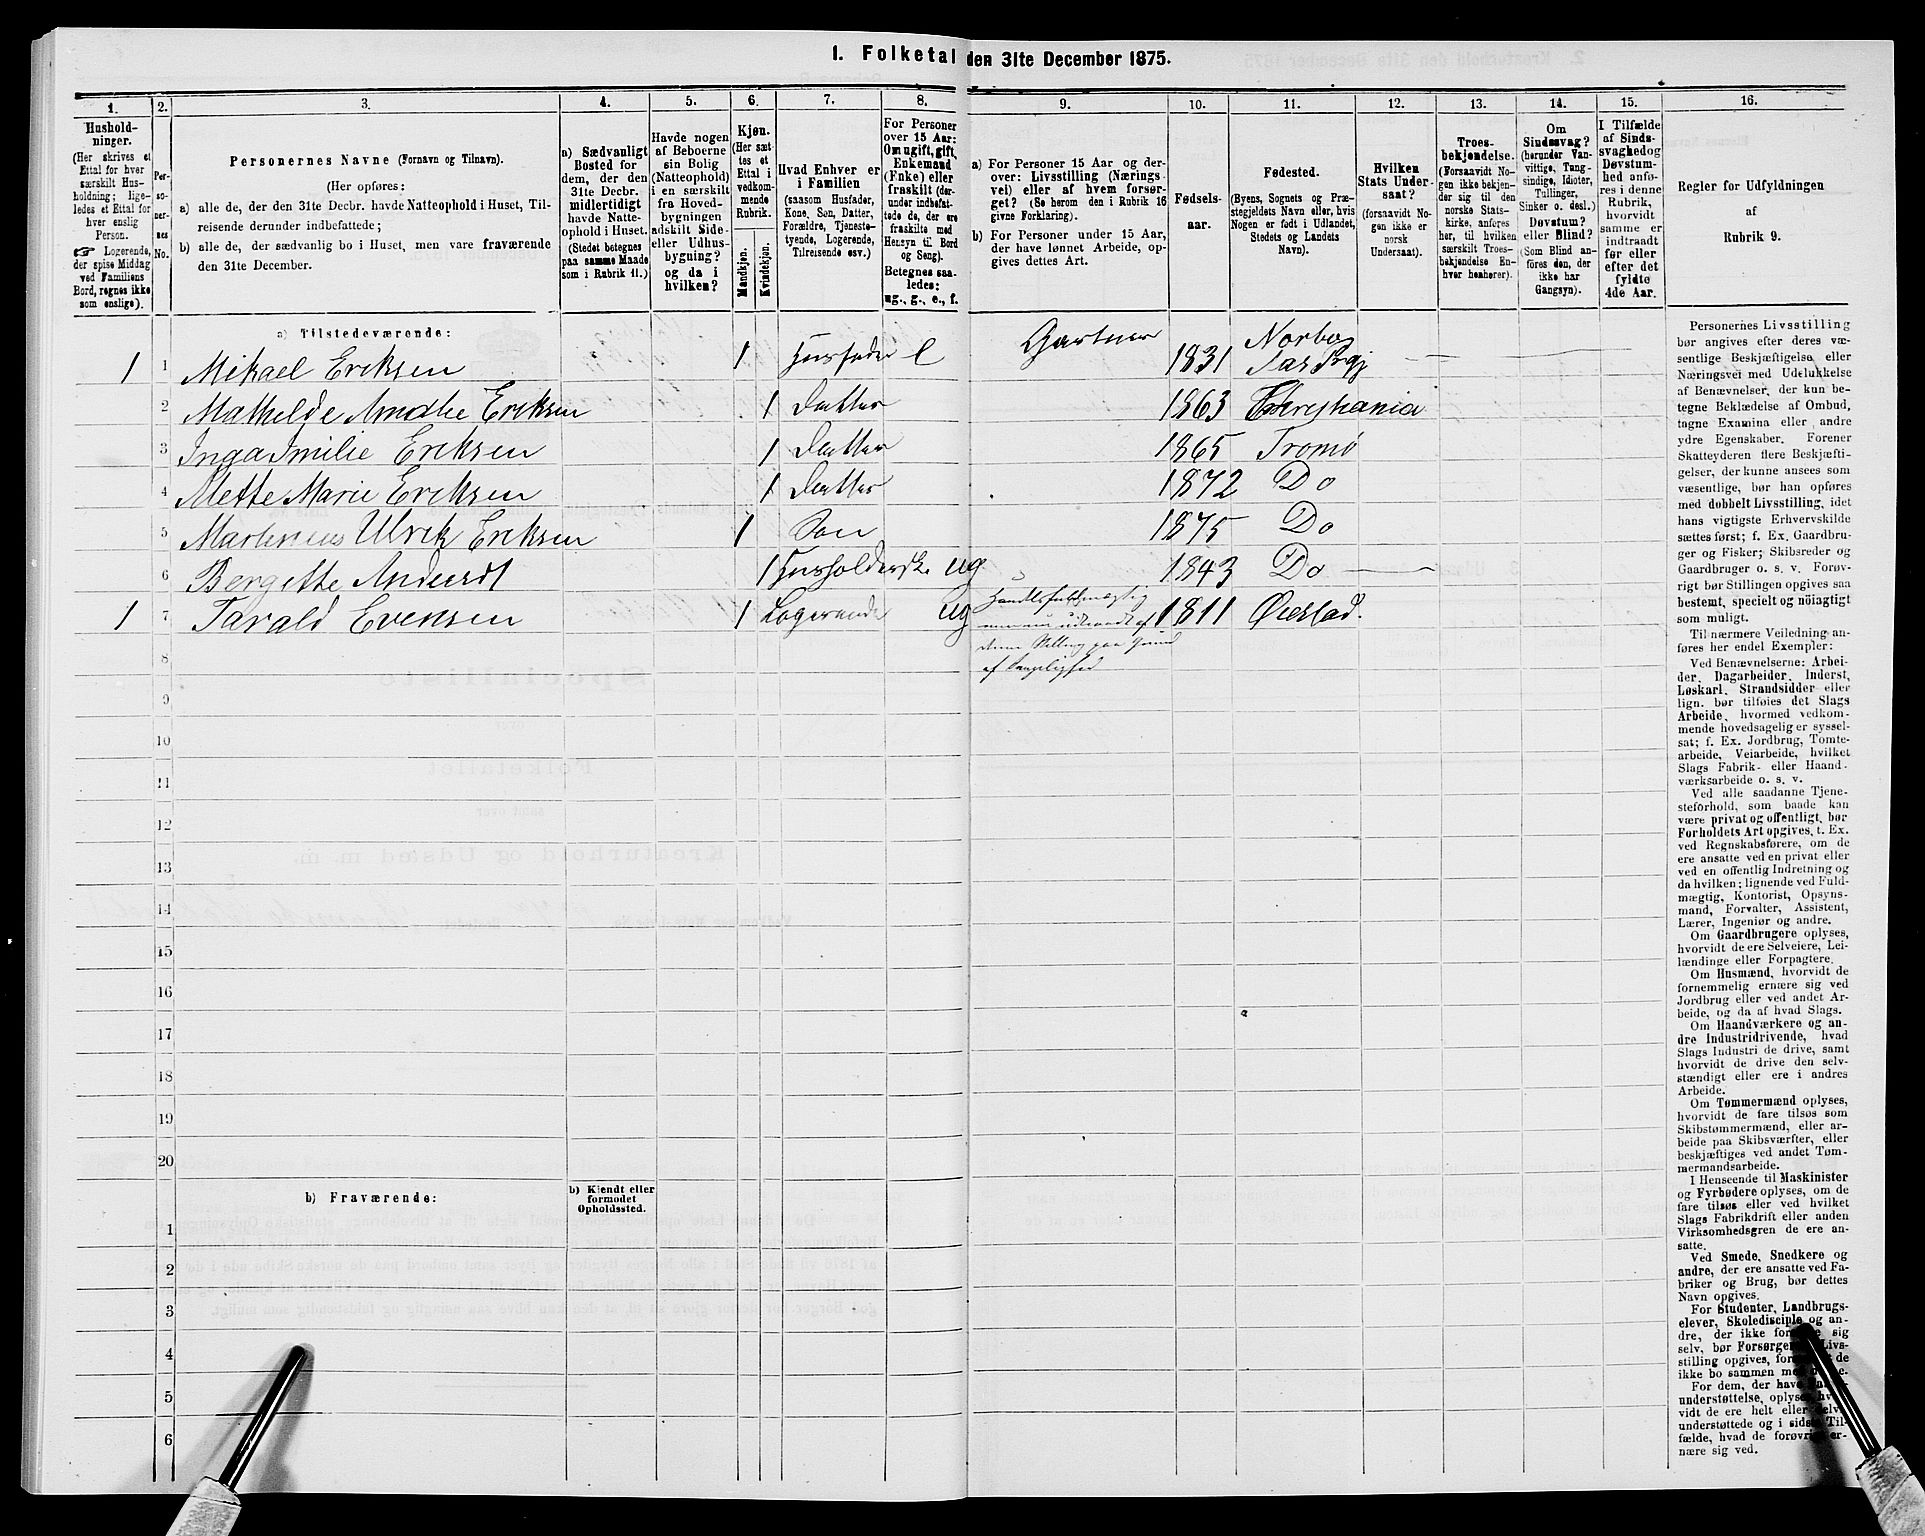 1. Folketal den 31te December 1875.
1.
Hushold-
ninger.
(Her skrives et
Ettal for hver
særskilt Hus-
holdning; lige-
ledes et Ettal for
hver enslig
Person.
☞ Logerende,
der spise Middag
ved Familiens
Bord, regnes ikke
som enslige).
2.
Per-
so-
ner-
nes
No.
3.
Personernes Navne (Fornavn og Tilnavn).
(Her opføres:
a) alle de, der den 31te Decbr. havde Natteophold i Huset, Til-
reisende derunder indbefattede;
b) alle de, der sædvanlig bo i Huset, men vare fraværende
den 31te December.
4.
a) Sædvanligt
Bosted for
dem, der den
31te Decbr.
midlertidigt
havde Natte-
ophold i Huset.
(Stedet betegnes
paa samme Maade
som i Rubrik 11.)
5.
Havde nogen
af Beboerne
sin Bolig
(Natteophold)
i en særskilt
fra Hoved-
bygningen
adskilt Side-
eller Udhus-
bygning?
og da i
hvilken?
6.
Kjøn.
(Her sæt-
tes et
Ettal i
vedkom-
mende
Rubrik.
Mandkjøn.
Kvindekjøn.
7.
Hvad Enhver er
i Familien
(saasom Husfader,
Kone, Søn, Datter,
Forældre, Tjeneste-
tyende, Logerende,
Tilreisende osv.)
8.
For Personer
over 15 Aar:
Om ugift, gift,
Enkemand
(Enke) eller
fraskilt (der-
under indbefat-
tede de, der ere
fraskilte med
Hensyn til Bord
og Seng).
Betegnes saa-
ledes:
ug., g., e., f.
9.
a) For Personer 15 Aar og der-
over: Livsstilling (Nærings-
vei) eller af hvem forsør-
get? (Se herom den i Rubrik 16
givne Forklaring).
b) For Personer under 15 Aar,
der have lønnet Arbeide, op-
gives dettes Art.
10.
Fødsels-
aar.
11.
Fødested.
(Byens, Sognets og Præ-
stegjeldets Navn eller, hvis
Nogen er født i Udlandet,
Stedets og Landets
Navn).
12.
Hvilken
Stats Under-
saat?
(forsaavidt No-
gen ikke er
norsk
Undersaat).
13.
Troes-
bekjendelse.
(Forsaavidt No-
gen ikke bekjen-
der sig til den
norske Stats-
kirke, anføres
her, til hvilken
særskilt Troes-
bekjendelse En-
hver henhører).
14.
Om
Sindssvag?
(herunder Van-
vittige, Tung-
sindige, Idioter,
Tullinger,
Sinker o. desl.)
Døvstum?
eller Blind?
(Som Blind an-
føres den, der
ikke har
Gangsyn).
15.
I Tilfælde
af Sinds-
svaghed og
Døvstum-
hed anfø-
res i denne
Rubrik,
hvorvidt
samme er
indtraadt
før eller
efter det
fyldte
4de Aar.
16.
Regler for Udfyldningen
af
Rubrik 9.
a) Tilstedeværende:
1 1 Mikael Eriksen 1 Husfader e Gartner 1831 Norbo
2 Mathilde Amalie Eriksen 1 Datter 1863 Christiania
3 Inga Emilie Eriksen 1 Datter 1865 Tromø
4 Mette Marie Eriksen 1 Datter 1872 Do
5 Martinius Ulrik Eriksen 1 Søn 1875 Do
6 Bergitte 1 Husholderske ug 1843 Do
1 7 Tarald Evensen 1 Logerende ug Handelsfuldmægtig 1811 Øiestad.
denne Stilling paa Grund
af Svagelighed
8
9
10
11
12
13
14
15
16
17
18
19
20
b) Fraværende:
b) Kjendt eller
formodet
Opholdssted.
1
2
3
4
5
6
Personernes Livsstilling
bør angives efter deres væ-
sentlige Beskjæftigelse eller
Næringsvei med Udelukkelse
af Benævnelser, der kun be-
tegne Beklædelse af Ombud,
tagne Examina eller andre
ydre Egenskaber. Forener
Skatteyderen flere Beskjæfti-
gelser, der kunne ansees som
væsentlige, bør han opføres
med dobbelt Livsstilling, idet
hans vigtigste Erhvervskilde
sættes først; f. Ex. Gaardbru-
ger og Fisker; Skibsreder og
Gaardbruger o. s. v. Forøv-
rigt bør Stillingen opgives saa
bestemt, specielt og nøiagtigt
som muligt.
Til nærmere Veiledning an-
føres her endel Exempler:
Ved Benævnelserne: Arbei-
der, Dagarbeider, Inderst,
Løskarl, Strandsidder eller
lign. bør tilføies det Slags
Arbeide, hvormed vedkom-
mende hovedsagelig er syssel-
sat; f. Ex. Jordbrug, Tomte-
arbeide, Veiarbeide, hvilket
Slags Fabrik- eller Haand-
værksarbeide o. s. v.
Ved alle saadanne Tjene-
steforhold, som baade kan
være privat og offentligt, bør
Forholdets Art opgives, t. Ex.
ved Regnskabsførere, om de
ere ansatte ved en privat eller
ved en offentlig Indretning og
da hvilken; lignende ved Fuld-
mægtig, Kontorist, Opsyns-
mand, Forvalter, Assistent,
Lærer, Ingeniør og andre.
Om Gaardbrugere oplyses,
hvorvidt de ere Selveiere, Lei-
lændinge eller Forpagtere.
Om Husmænd, hvorvidt de
fornemmelig ernære sig ved
Jordbrug eller ved andet Ar-
beide, og da af hvad Slags.
Om Haandværkere og an-
dre Industridrivende, hvad
Slags Industri de drive, samt
hvorvidt de drive den selv-
stændigt eller ere i andres
Arbeide.
Om Tømmermænd oplyses,
hvorvidt de fare tilsøs som
Skibstømmermænd, eller ar-
beide paa Skibsværfter, eller
beskjæftiges ved andet Tøm-
mermandsarbeide.
I Henseende til Maskinister
og Fyrbødere oplyses, om de
fare tilsøs eller ved hvilket
Slags Fabrikdrift eller anden
Virksomhedsgren de ere an-
satte.
Ved Smede, Snedkere og
andre, der ere ansatte ved Fa-
briker og Brug, bør dettes
Navn opgives.
For Studenter, Landbrugs-
elever, Skoledisciple og an-
dre, der ikke sig
selv, bør Livs-
stilling opgives, de
ikke bo sammen
For dem, der have
understøttelse, oplyses
vidt de ere helt eller
understøttede og i sidste Til-
fælde, hvad de forøvrigt er-
nære sig ved.